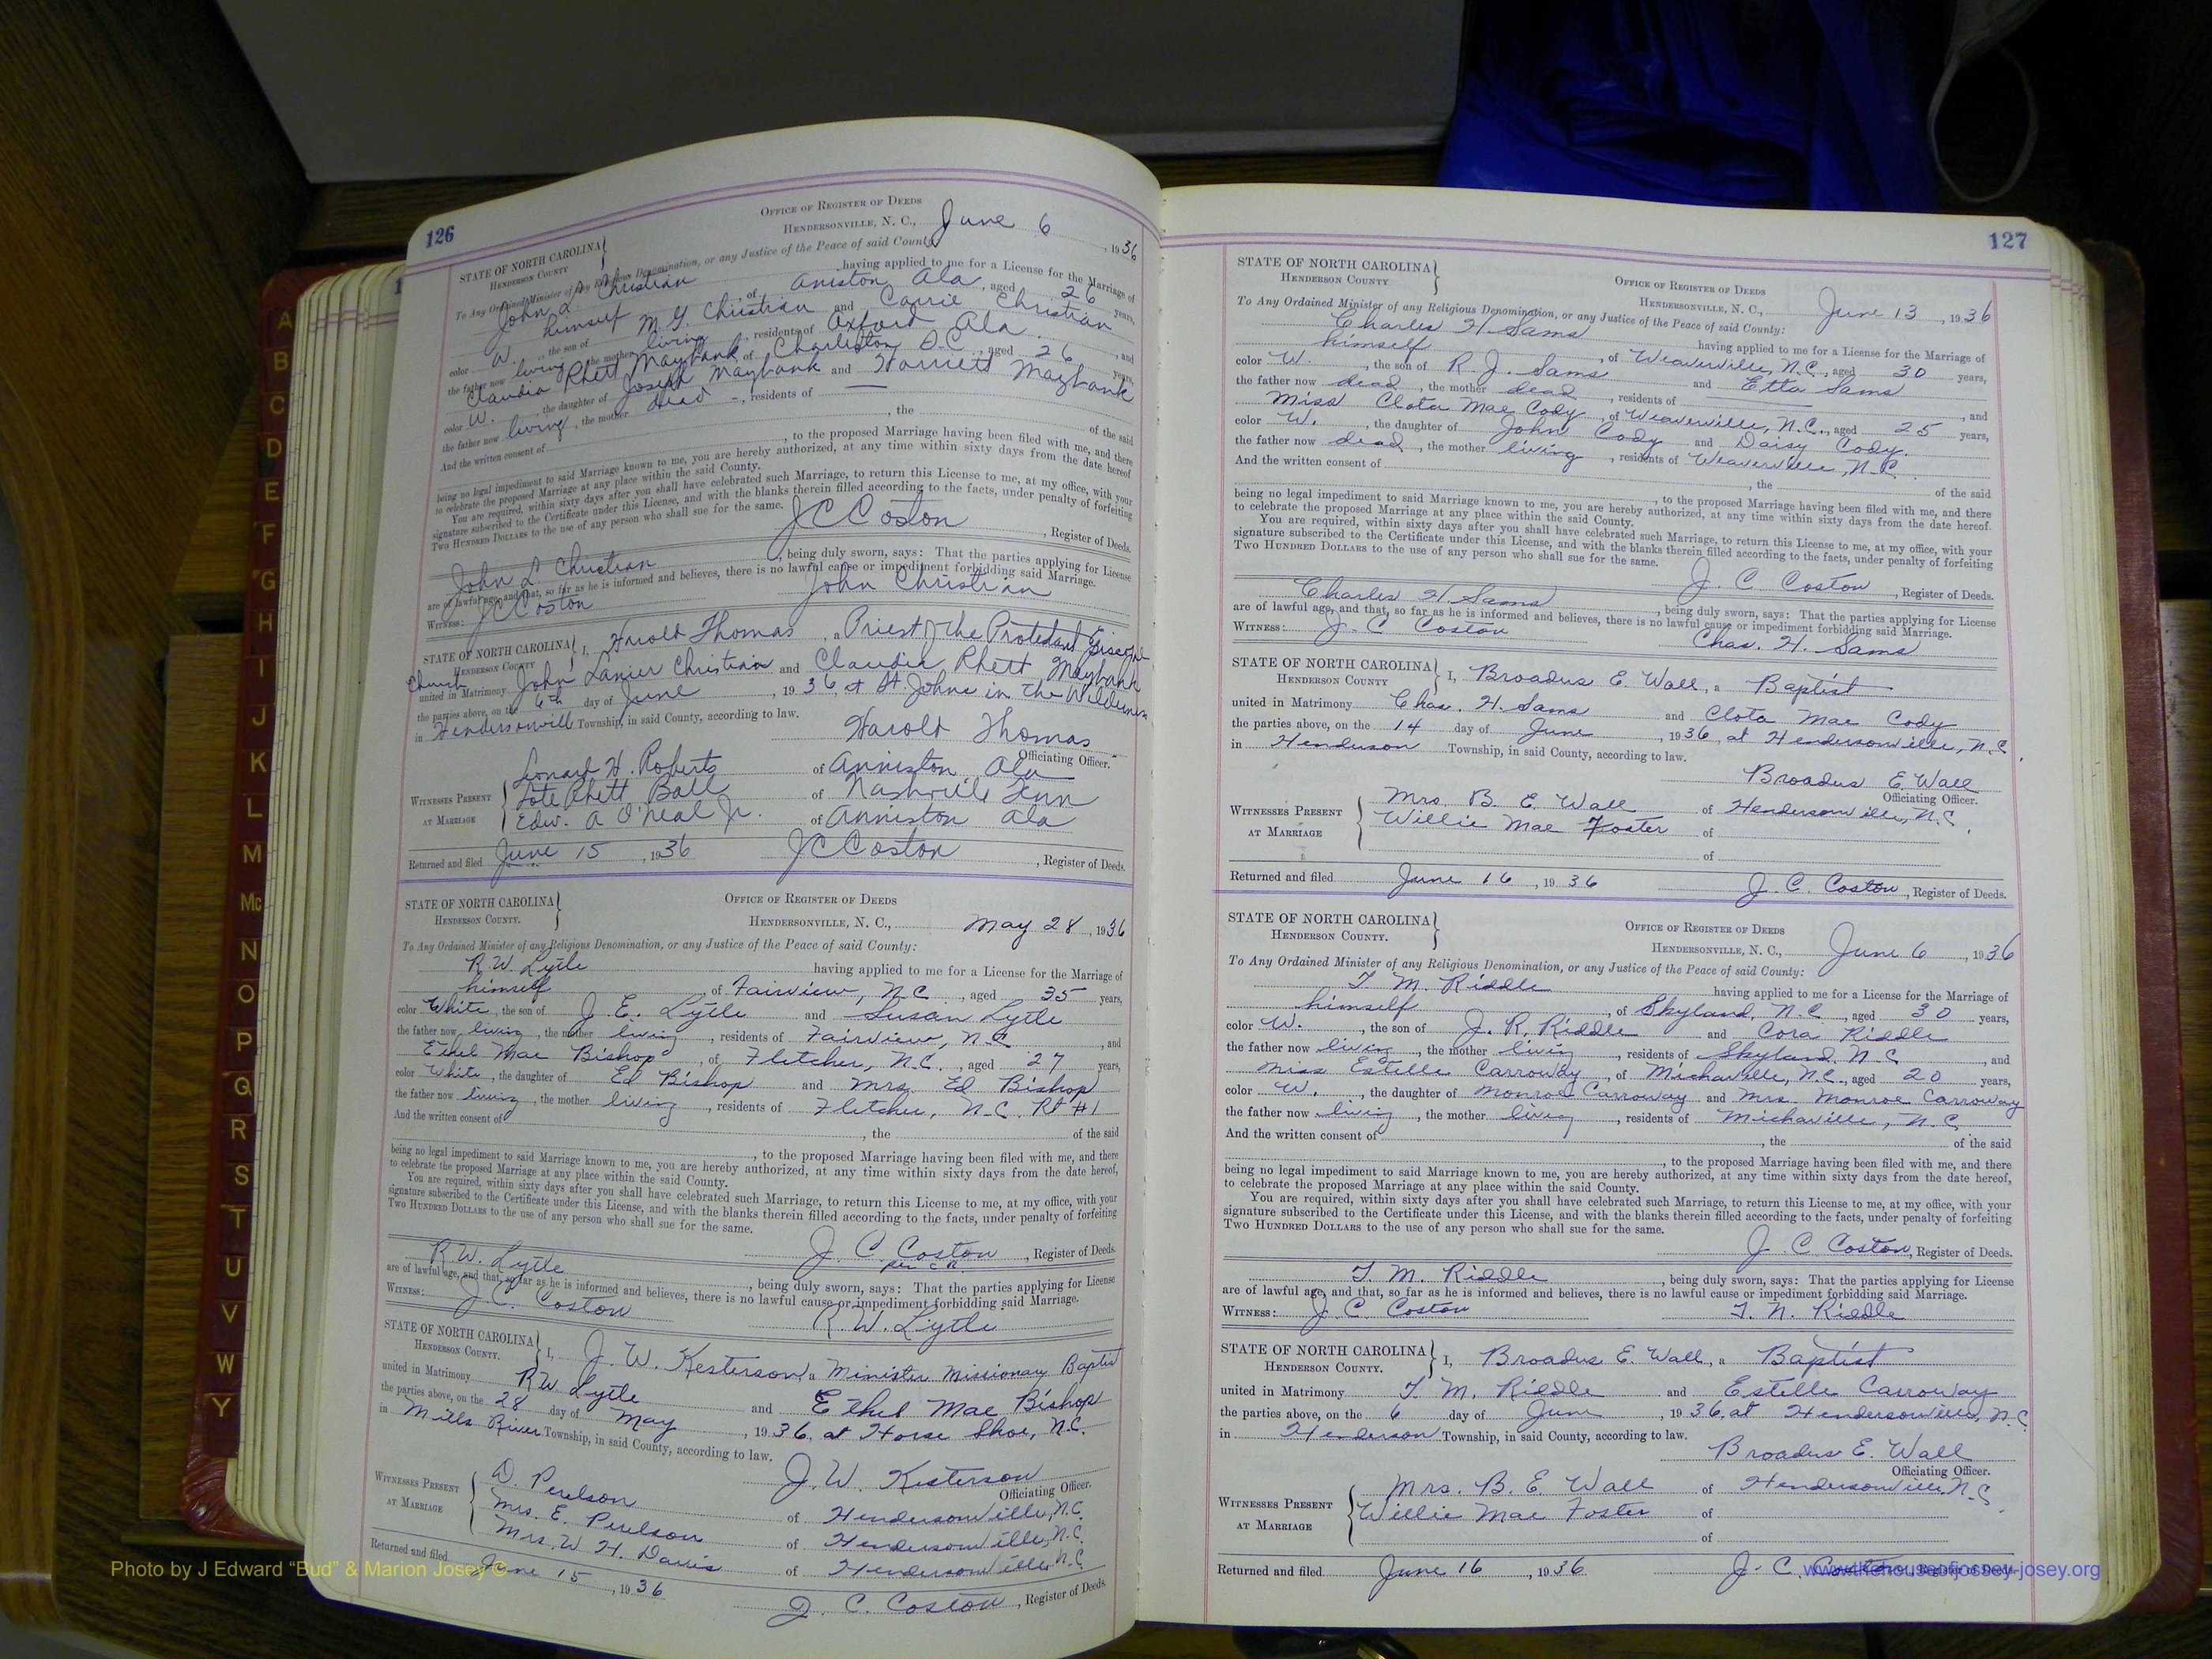 126
OFFICE OF REGISTER OF DEEDS
STATE OF NORTH CAROLINA
HENDERSON COUNTY
HENDERSONVILLE, N. C., June 6, 1936
To Any Ordained Minister of any Religious Denomination, or any Justice of the Peace of said County
John L. Christian having applied to me for a License for the Marriage of
himself, of Aniston Ala, aged 26 years,
color W., the son of M. G. Christian and Carrie Christian
the father now living, the mother living, residents of Oxford Ala, and
Claudia Rhett Maybank, of Charleston S.C., aged 26 years,
color W., the daughter of Joseph Maybank and Harriett Maybank
the father now living, the mother dead -, residents of —
And the written consent of , the of the said
, to the proposed Marriage having been filed with me, and there
being no legal impediment to said Marriage known to me, you are hereby authorized, at any time within sixty days from the date hereof
to celebrate the proposed Marriage at any place within the said County.
You are required, within sixty days after you shall have celebrated such Marriage, to return this License to me, at my office, with your
signature subscribed to the Certificate under this License, and with the blanks therein filled according to the facts, under penalty of forfeiting
TWO HUNDRED DOLLARS to the use of any person who shall sue for the same.
JCCoston, Register of Deeds.
John L Christian, being duly sworn, says: That the parties applying for License
are of lawful age, and that, so far as he is informed and believes, there is no lawful cause or impediment forbidding said Marriage.
WITNESS: JCCoston John Christian
STATE OF NORTH CAROLINA
HENDERSON COUNTY
I, Harold Thomas, a Priest of the Protestant Episcopal
Church
united in Matrimony John Lanier Christian and Claudia Rhett Maybank
the parties above, on the 6th day of June, 1936, at St. Johns in the Wilderness
in Hendersonvill Township, in said County, according to law.
Harold Thomas
Officiating Officer.
WITNESSES PRESENT AT MARRIAGE
Leonard H. Roberts of Anniston Ala
Rhett Ball of Nashville Tenn
Edw. A O'Neal Jr. of Anniston Ala
Returned and filed June 15, 1936 JCCoston, Register of Deeds.
STATE OF NORTH CAROLINA
HENDERSON COUNTY.
OFFICE OF REGISTER OF DEEDS
HENDERSONVILLE, N. C., May 28, 1936
To Any Ordained Minister of any Religious Denomination, or any Justice of the Peace of said County:
R.W. Lytle having applied to me for a License for the Marriage of
himself, of Fairview, N.C., aged 35 years,
color White, the son of J. E. Lytle and Susan Lytle
the father now living, the mother living, residents of Fairview, N.C., and
Ethel Mae Bishop, of Fletcher, N.C., aged 27 years,
color White, the daughter of Ed Bishop and Mrs. Ed Bishop
the father now living, the mother living, residents of Fletcher, N.C. Rt #1
And the written consent of , the of the said
, to the proposed Marriage having been filed with me, and there
being no legal impediment to said Marriage known to me, you are hereby authorized, at any time within sixty days from the date hereof,
to celebrate the proposed Marriage at any place within the said County.
You are required, within sixty days after you shall have celebrated such Marriage, to return this License to me, at my office, with your
signature subscribed to the Certificate under this License, and with the blanks therein filled according to the facts, under penalty of forfeiting
TWO HUNDRED DOLLARS to the use of any person who shall sue for the same.
J. C. Coston, Register of Deeds.
R.W. Lytle, being duly sworn, says: That the parties applying for License
are of lawful age, and that, so far as he is informed and believes, there is no lawful cause or impediment forbidding said Marriage.
WITNESS: J. C. Coston R. W. Lytle
STATE OF NORTH CAROLINA
HENDERSON COUNTY.
I, J. W. Kesterson, a Minister Missionary Baptist
united in Matrimony R W Lytle and Ethel Mae Bishop
the parties above, on the 28 day of May, 1936, at Horse Shoe, N.C.
in Mills River Township, in said County, according to law.
J. W. Kesterson
Officiating Officer.
WITNESSES PRESENT AT MARRIAGE
D. Perlson of Hendersonville, N.C.
Mrs. E. Perlson of Hendersonville, N.C.
Mrs. W. H. Davis of Hendersonville N.C.
Returned and filed June 15, 1936 J. C. Coston, Register of Deeds.
127
STATE OF NORTH CAROLINA
HENDERSON COUNTY
OFFICE OF REGISTER OF DEEDS
HENDERSONVILLE, N. C., June 13, 1936
To Any Ordained Minister of any Religious Denomination, or any Justice of the Peace of said County:
Charles H Sams having applied to me for a License for the Marriage of
himself, of Weaverville, N.C., aged 30 years,
color W., the son of R. J. Sams and Etta Sams
the father now dead, the mother dead, residents of , and
Miss Clota Mae Cody, of Weaverville, N.C., aged 25 years,
color W., the daughter of John Cody and Daisy Cody.
the father now dead, the mother living, residents of Weaverville, N.C.
And the written consent of , the of the said
, to the proposed Marriage having been filed with me, and there
being no legal impediment to said Marriage known to me, you are hereby authorized, at any time within sixty days from the date hereof.
to celebrate the proposed Marriage at any place within the said County.
You are required, within sixty days after you shall have celebrated such Marriage, to return this License to me, at my office, with your
signature subscribed to the Certificate under this License, and with the blanks therein filled according to the facts, under penalty of forfeiting
TWO HUNDRED DOLLARS to the use of any person who shall sue for the same.
J. C. Coston, Register of Deeds.
Charles H Sams, being duly sworn, says: That the parties applying for License
are of lawful age, and that, so far as he is informed and believes, there is no lawful cause or impediment forbidding said Marriage.
WITNESS: J. C Coston Chas. H. Sams
STATE OF NORTH CAROLINA
HENDERSON COUNTY
I, Broadus E. Wall, a Baptist
united in Matrimony Chas. H. Sams and Clota Mae Cody
the parties above, on the 14 day of June, 1936, at Hendersonville, N.C.
in Henderson Township, in said County, according to law.
Broadus E. Wall
Officiating Officer.
WITNESSES PRESENT AT MARRIAGE
Mrs. B. E. Wall of Hendersonville, N.C.
Willie Mae Foster of
of
Returned and filed June 16, 1936 J. C. Coston, Register of Deeds.
STATE OF NORTH CAROLINA
HENDERSON COUNTY.
OFFICE OF REGISTER OF DEEDS
HENDERSONVILLE, N. C., June 6, 1936
To Any Ordained Minister of any Religious Denomination, or any Justice of the Peace of said County:
T. M. Riddle having applied to me for a License for the Marriage of
himself, of Skyland, N.C., aged 30 years,
color W., the son of J. R. Riddle and Cora Riddle
the father now living, the mother living, residents of Skyland N.C., and
Miss Estelle Carroway, of Michaville, N.C., aged 20 years,
color W., the daughter of Monroe Carroway and Mrs. Monroe Carroway
the father now living, the mother living, residents of Michaville, N.C.
And the written consent of , the of the said
, to the proposed Marriage having been filed with me, and there
being no legal impediment to said Marriage known to me, you are hereby authorized, at any time within sixty days from the date hereof,
to celebrate the proposed Marriage at any place within the said County.
You are required, within sixty days after you shall have celebrated such Marriage, to return this License to me, at my office, with your
signature subscribed to the Certificate under this License, and with the blanks therein filled according to the facts, under penalty of forfeiting
TWO HUNDRED DOLLARS to the use of any person who shall sue for the same.
J. C. Coston, Register of Deeds.
T. M. Riddle, being duly sworn, says: That the parties applying for License
are of lawful age, and that, so far as he is informed and believes, there is no lawful cause or impediment forbidding said Marriage.
WITNESS: J. C. Coston T. N. Riddle
STATE OF NORTH CAROLINA
HENDERSON COUNTY.
I, Broadus E. Wall, a Baptist
united in Matrimony T. M. Riddle and Estelle Carroway
the parties above, on the 6 day of June, 1936, at Hendersonville, N.C.
in Henderson Township, in said County, according to law.
Broadus E. Wall
Officiating Officer.
WITNESSES PRESENT AT MARRIAGE
Mrs. B. E. Wall of Hendersonville N.C.
Willie Mae Foster of
of
Returned and filed June 16, 1936 J. C. Coston, Register of Deeds.
A
B
C
D
E
F
G
H
I
J
K
L
M
Mc
N
O
P
Q
R
S
T
U
V
W
Y
Photo by J Edward “Bud” & Marion Josey ©
www.thehouseofjossey-josey.org